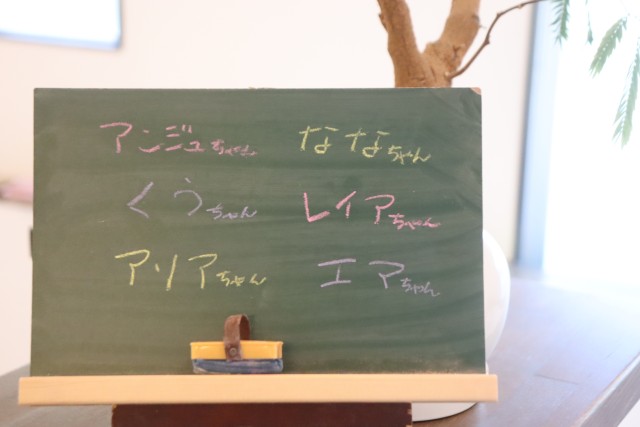 アンジュちゃん ななちゃん
くうちゃん レイアちゃん
アリアちゃん エマちゃん